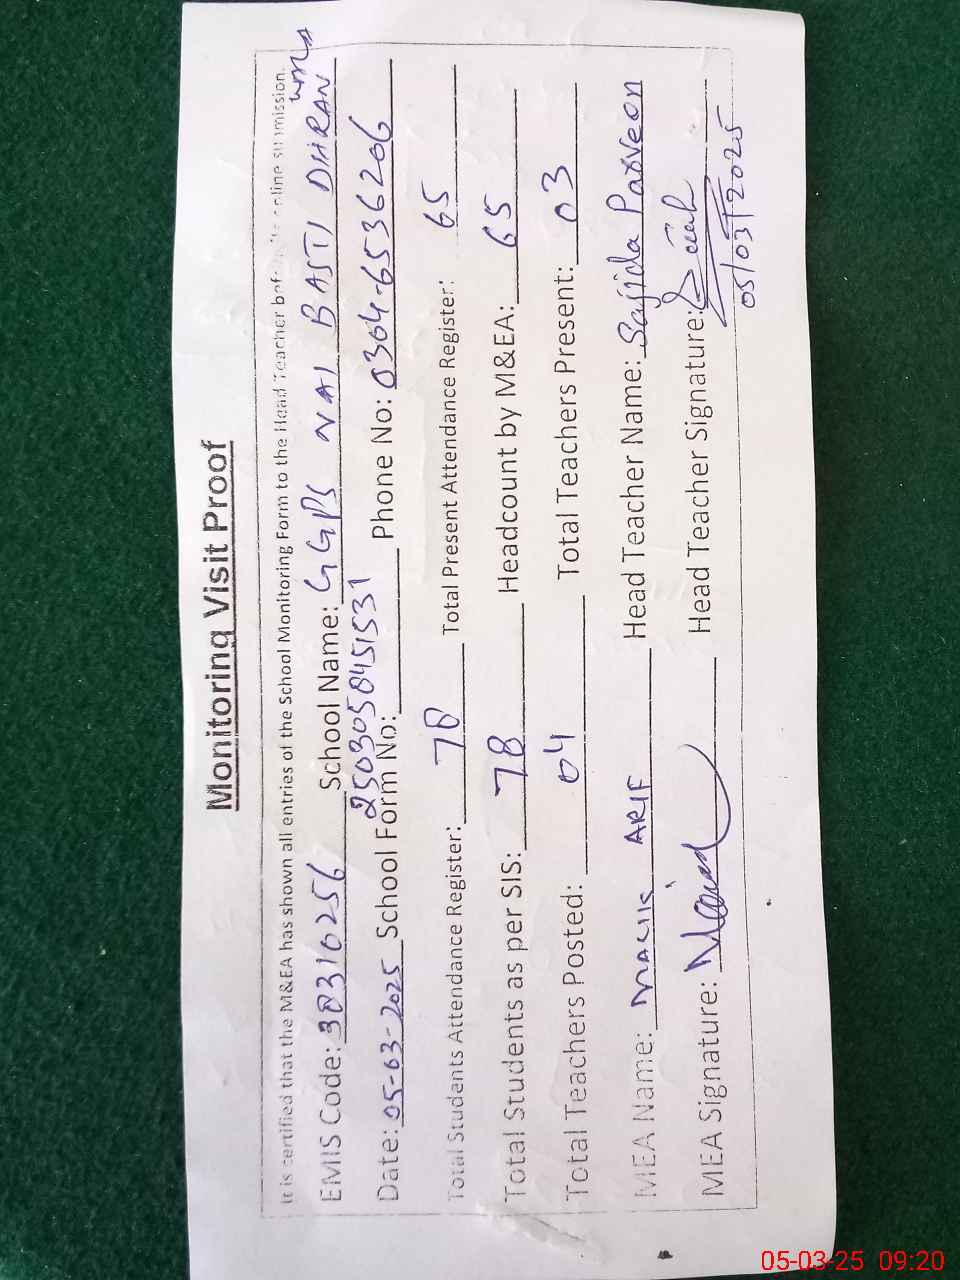 Monitoring Visit Proof
It is certified that the M&EA has shown all entries of the School Monitoring Form to the Head Teacher before online submission.
EMIS Code: 38310256 School Name: GGPS NAI BASTI DHRAN wala
Date: 05-03-2025 School Form No: 2503050451531 Phone No: 0304-6536206
Total Students Attendance Register: 78 Total Present Attendance Register: 65
Total Students as per SIS: 78 Headcount by M&EA: 65
Total Teachers Posted: 04 Total Teachers Present: 03
MEA Name: MALIK ARIF Head Teacher Name: Sajida Parveen
MEA Signature: Head Teacher Signature:
05/03/2025
05-03-25 09:20